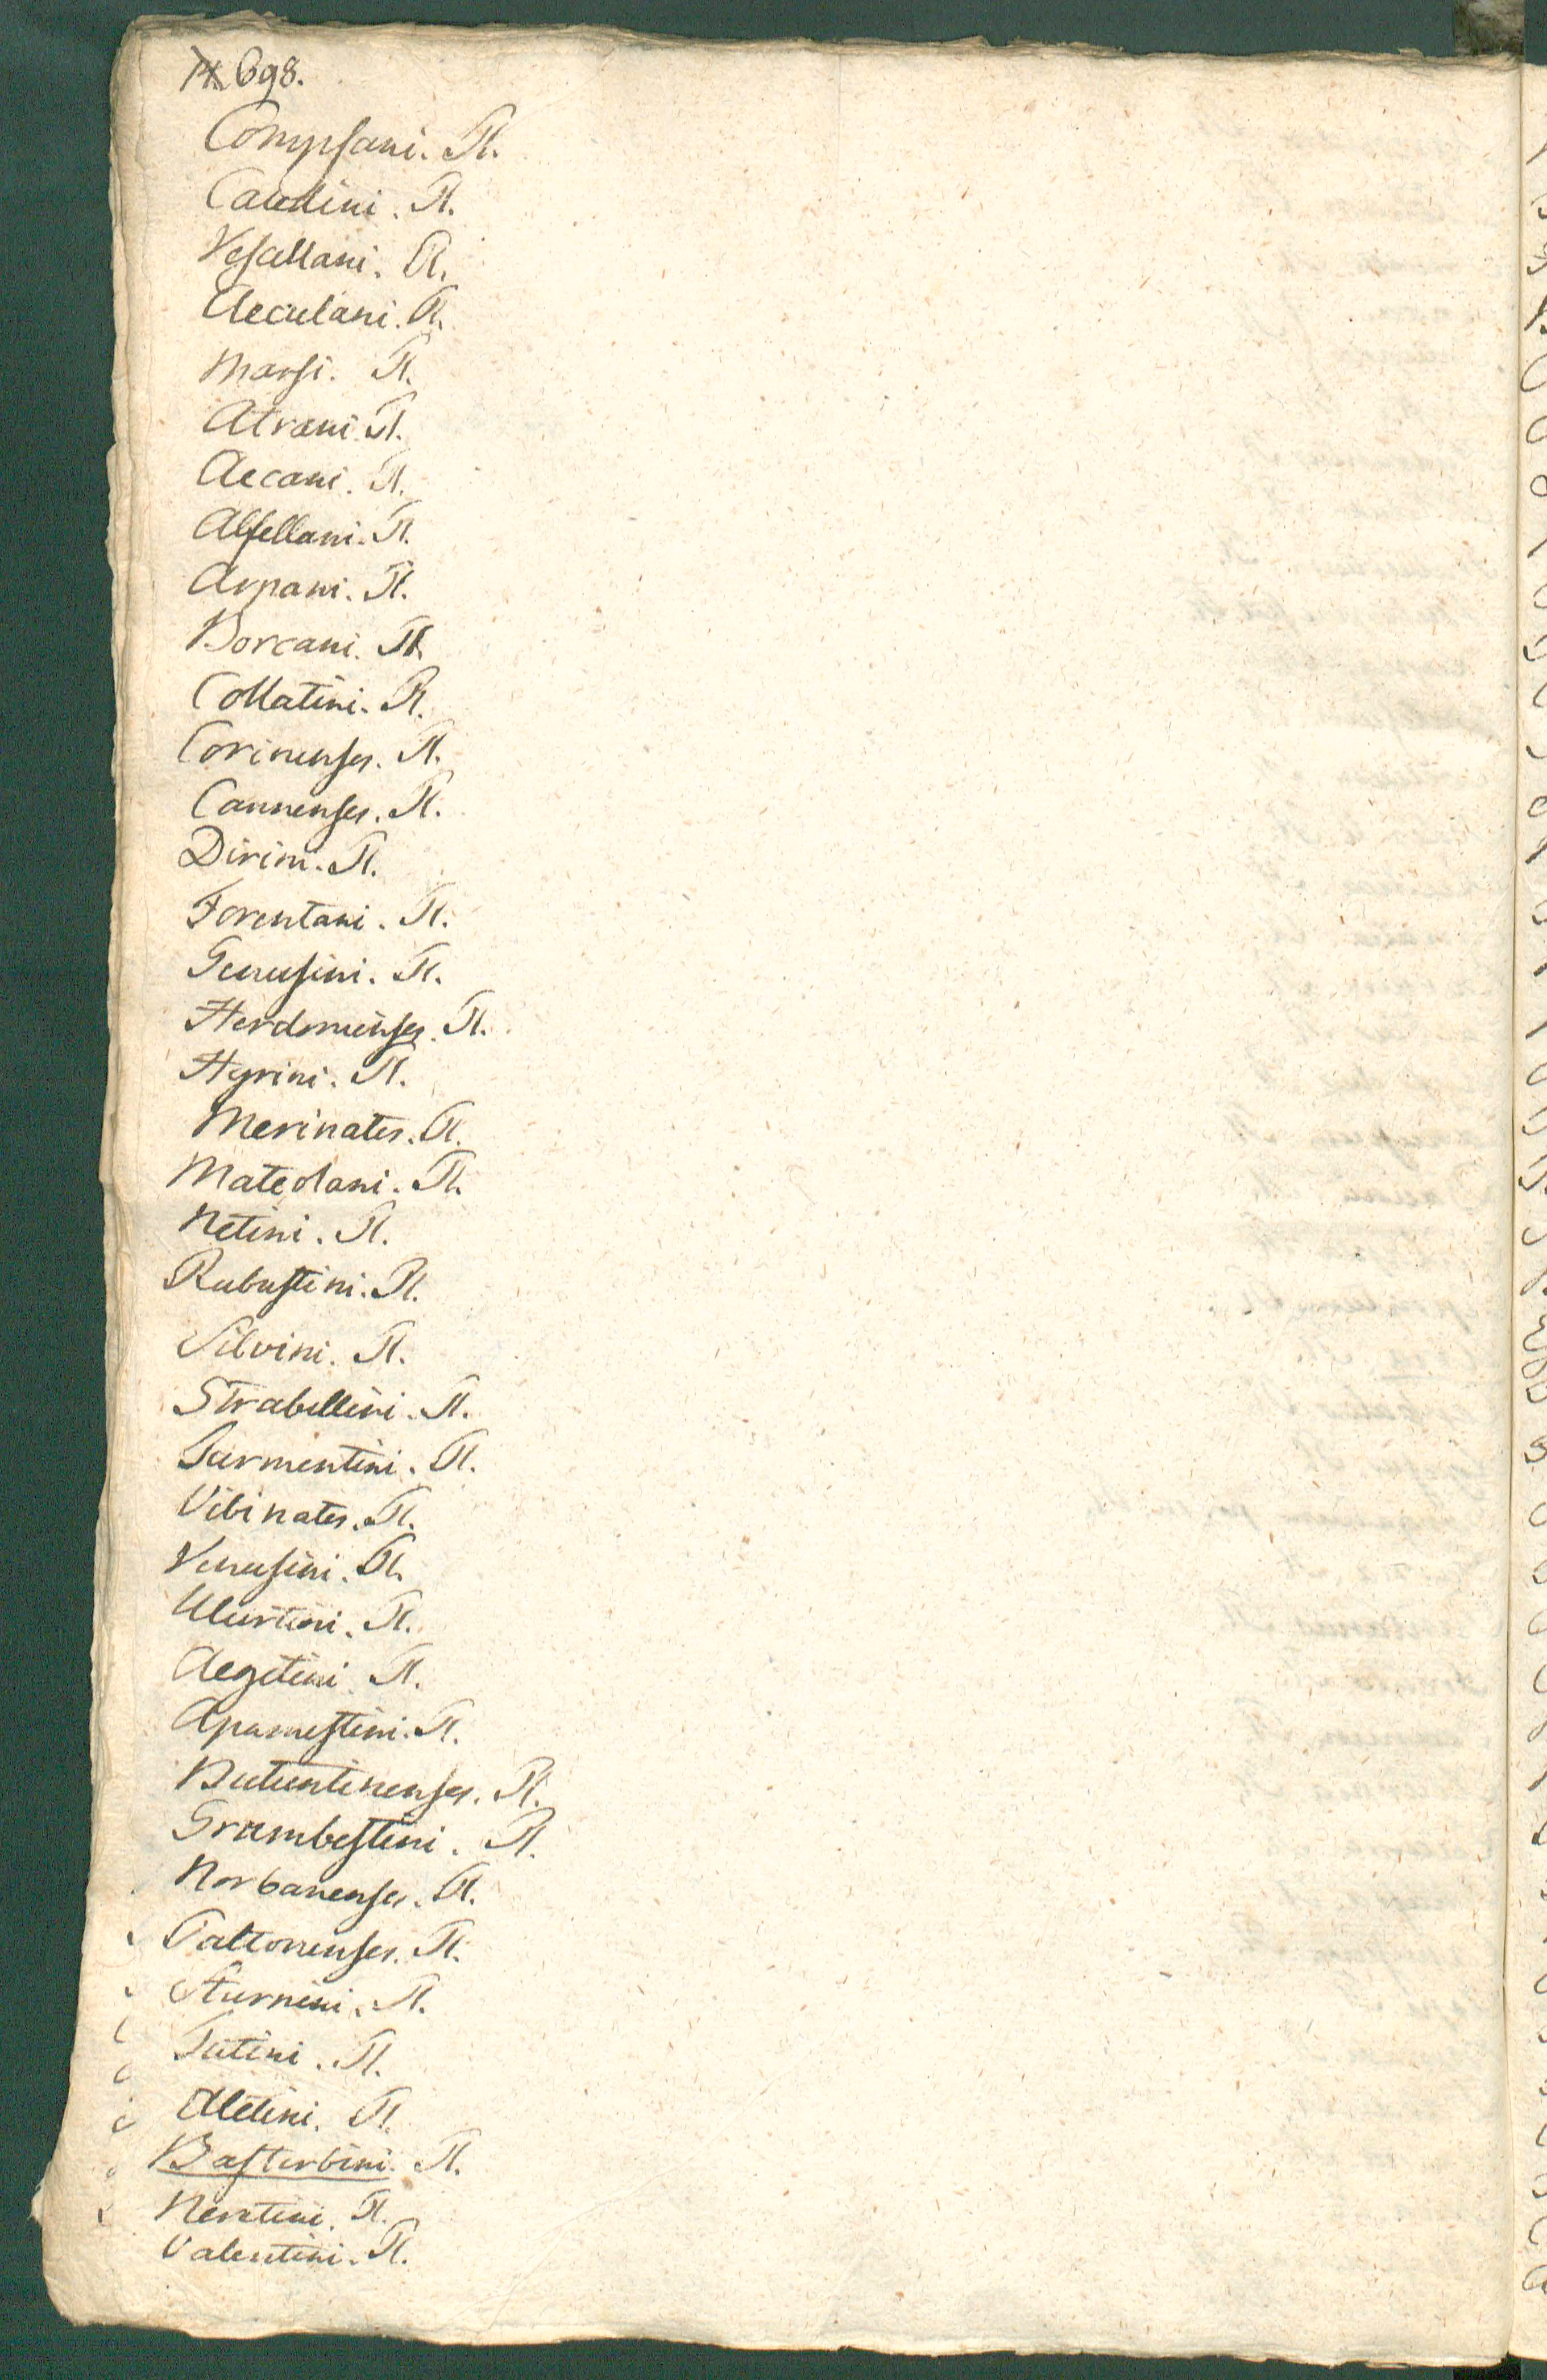 698.
Compsani. Pl.
Caudini. Pl.
Vescellani. Pl.
Aeculani. Pl.
Marsi. Pl.
Atrani. Pl.
Aecani. Pl.
Alfellani. Pl.
Arpani. Pl.
Borcani. Pl.
Collatini. Pl.
Corinenses. Pl.
Cannenses. Pl.
Dirini. Pl.
Forentani. Pl.
Genusini. Pl.
Herdonienses. Pl.
Hyrini. Pl.
Merinates. Pl.
Mateolani. Pl.
Netini. Pl.
Rubustini. Pl.
Silvini. Pl.
Strabellini. Pl.
Turmentini. Pl.
Vibinates. Pl.
Venusini. Pl.
Ulurtini. Pl.
Aegetini. Pl.
Apamestini. Pl.
Butuntinenses. Pl.
Grumbestini. Pl.
Norbanenses. Pl.
Paltonenses. Pl.
Sturnini. Pl.
Tutini. Pl.
Aletini. Pl.
Basterbini. Pl.
Neretini. Pl.
Valentini. Pl.